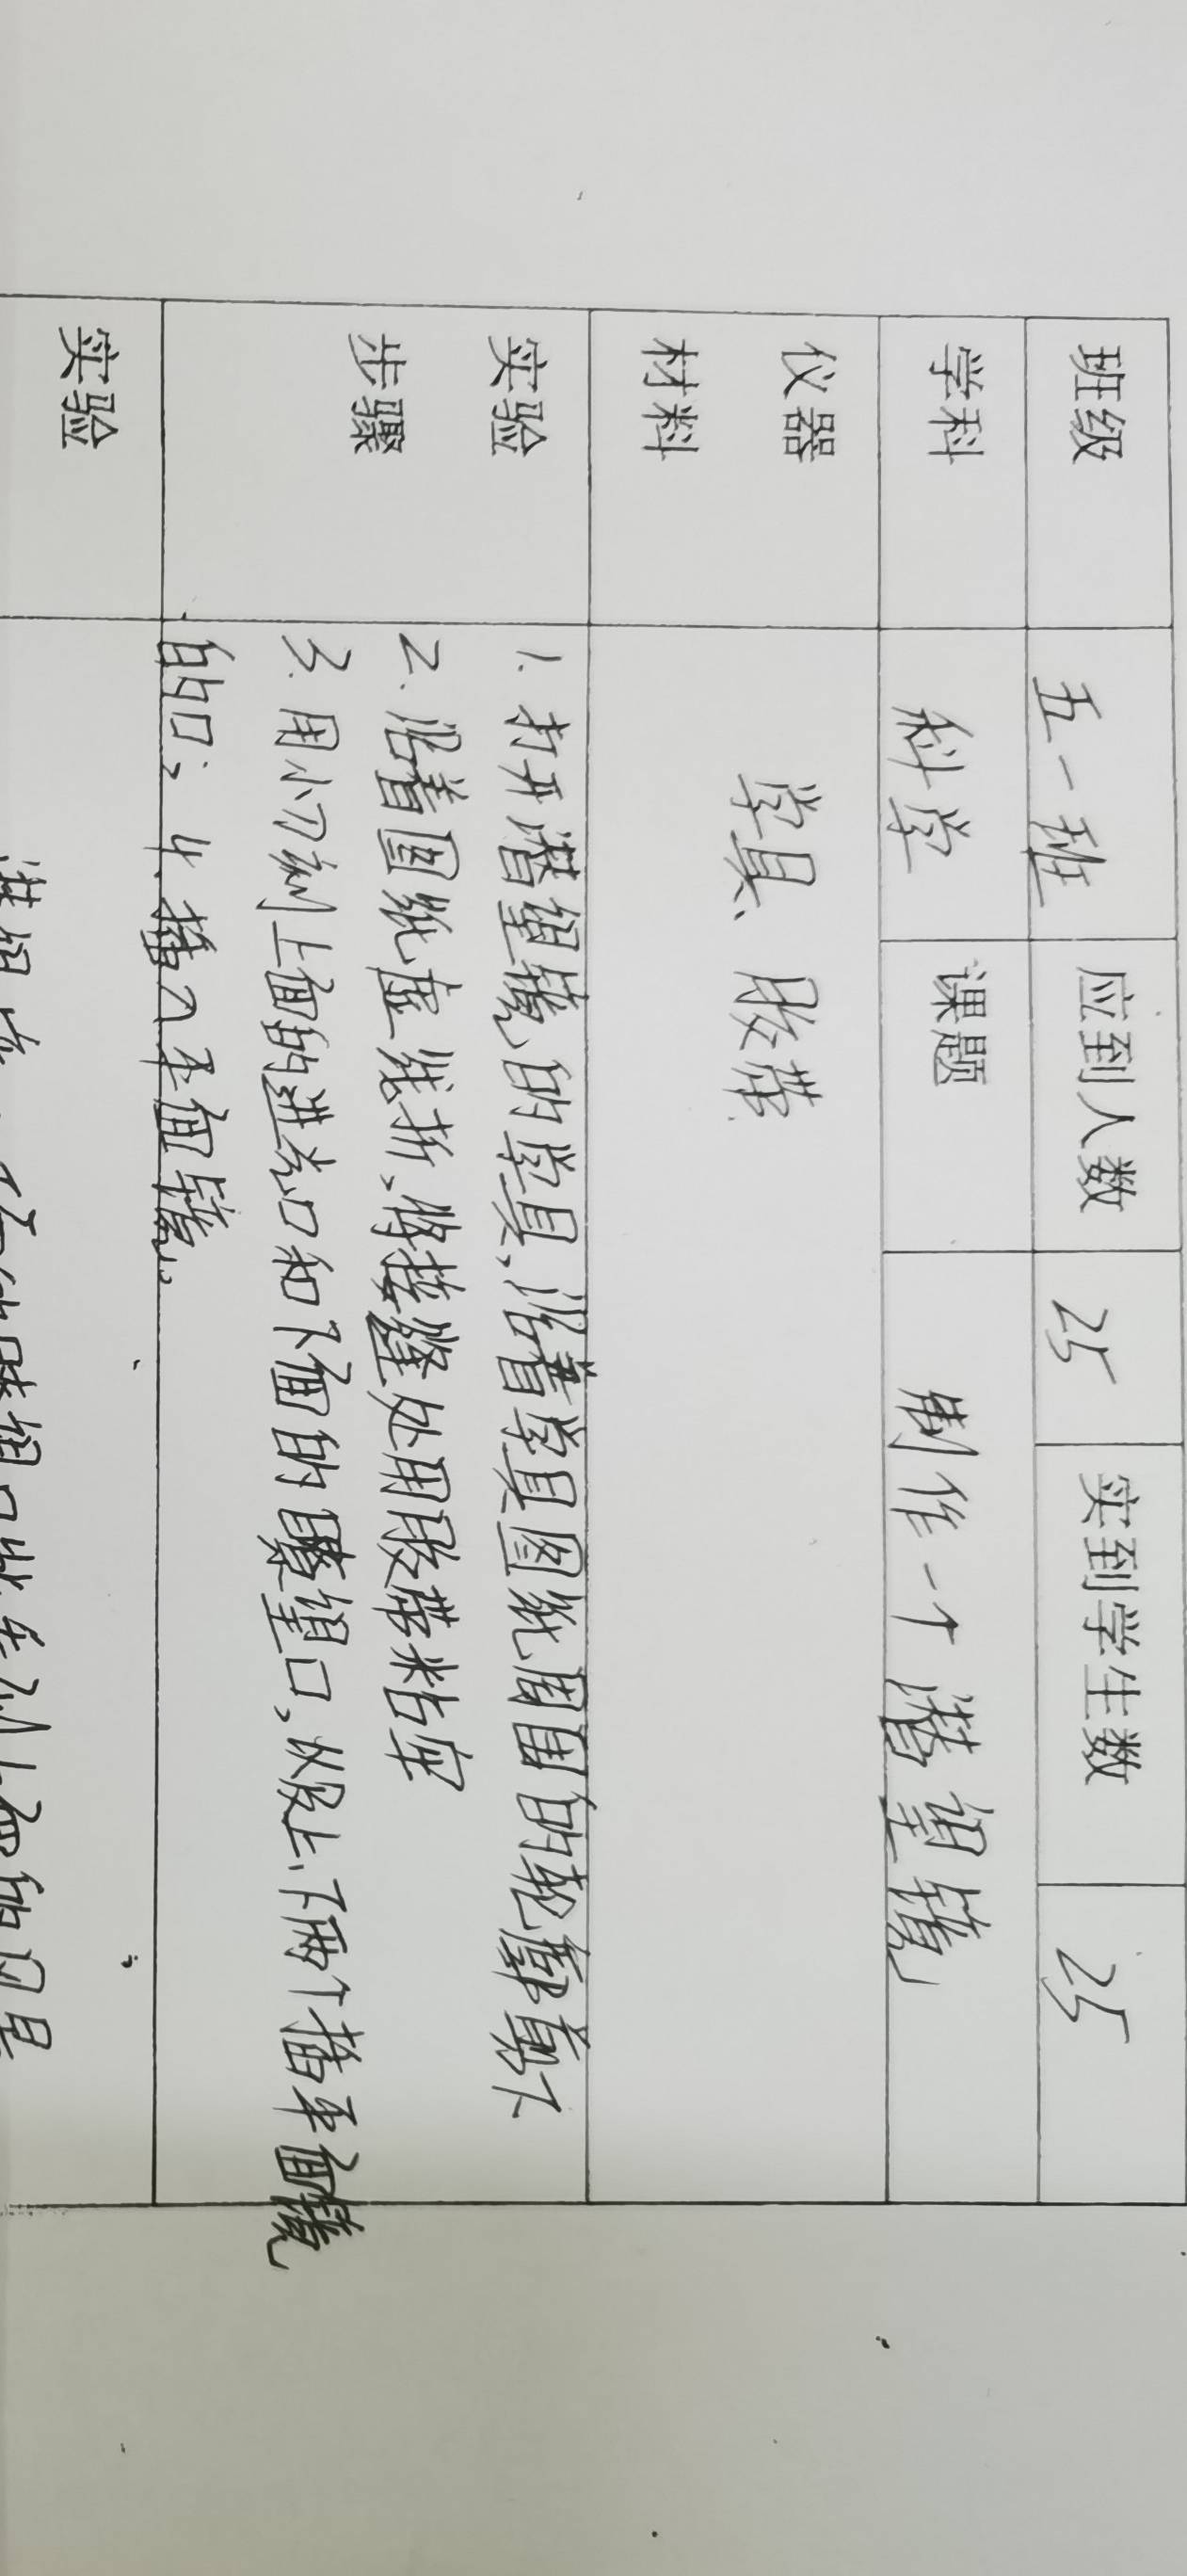 班级 五一班 应到人数 25 实到学生数 25
学科 科学 课题 制作一个潜望镜
仪器
学具、胶带
材料
实验 1. 打开潜望镜的学具,沿着学具图纸周围的轮廓剪下
步骤 2. 沿着图纸虚线折,将接缝处用胶带粘牢
3. 用小刀刻上面的进光口和下面的瞭望口,以及上、下两个插平面镜
的口; 4. 插入平面镜。
实验